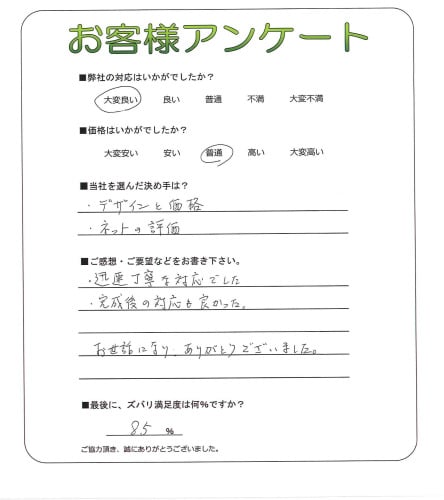 お客様アンケート
■弊社の対応はいかがでしたか？
大変良い 良い 普通 不満 大変不満
■価格はいかがでしたか？
大変安い 安い 普通 高い 大変高い
■当社を選んだ決め手は？
・デザインと価格
・ネットの評価
■ご感想・ご要望などをお書き下さい。
・迅速丁寧な対応でした
・完成後の対応も良かった。
お世話になり、ありがとうございました。
■最後に、ズバリ満足度は何%ですか？
85 %
ご協力頂き、誠にありがとうございました。